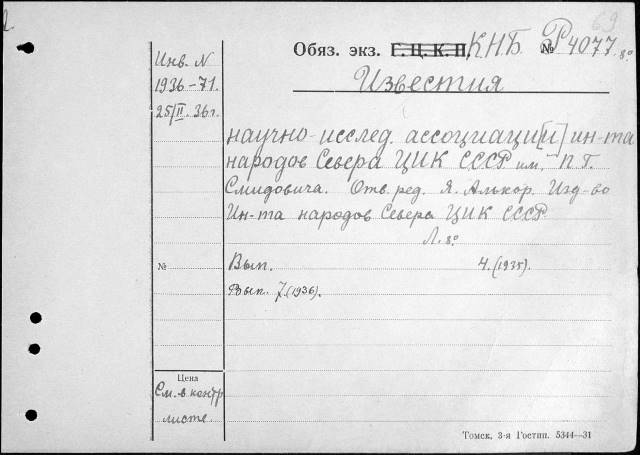 69
Обяз. экз. Г. Ц. К. П. КНБ. № Р 4077 8°
Инв. N
1936-71.
25/II. 36 г.
Известия
научно-исслед. ассоциаци[и] ин-та
народов Севера ЦИК СССР им. П Г.
Смидовича. Отв. ред. Я. Алькор. Изд-во
Ин-та народов Севера ЦИК СССР
Л. 8°
№ Вып. 4. (1935).
Вып. 7. (1936).
Цена
См. в контр
листе.
Томск, 3-я Гостип. 5344—31